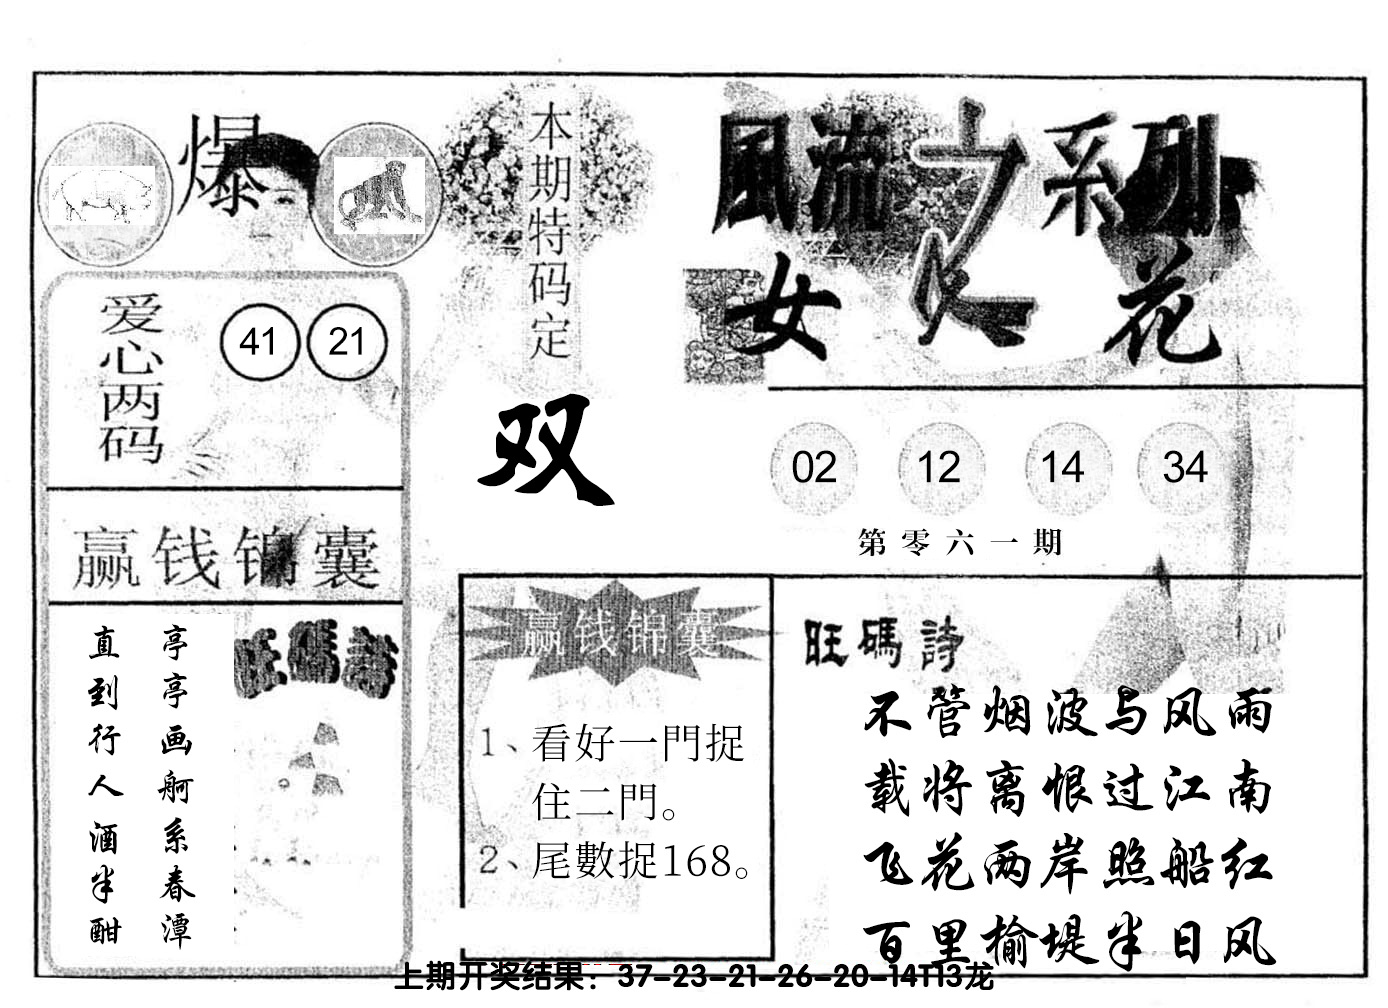 爆
本期特码定
双
風流之系列
女人花
爱心两码
41 21
02 12 14 34
第零六一期
赢钱锦囊
旺碼詩
亭亭画舸系春潭
直到行人酒半酣
赢钱锦囊
1、看好一門捉
住二門。
2、尾數捉168。
旺碼詩
不管烟波与风雨
载将离恨过江南
飞花两岸照船红
百里榆堤半日风
上期开奖结果：37-23-21-26-20-14T13龙